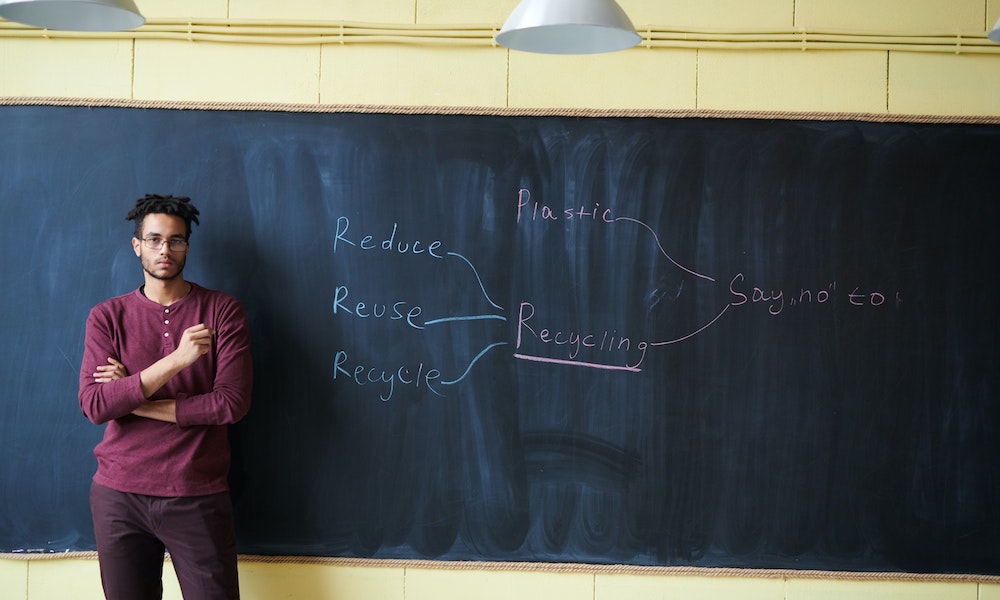 Reduce
Reuse
Recycle
Plastic
Recycling
Say „no" to